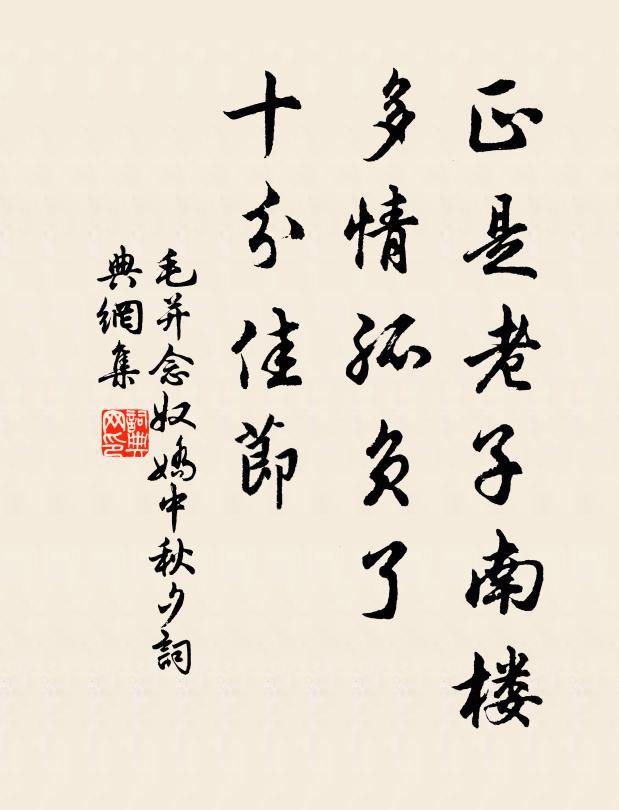 正是老子南楼
多情孤负了
十分佳節
毛并念奴嬌中秋夕詞
典網集
詞典
网印